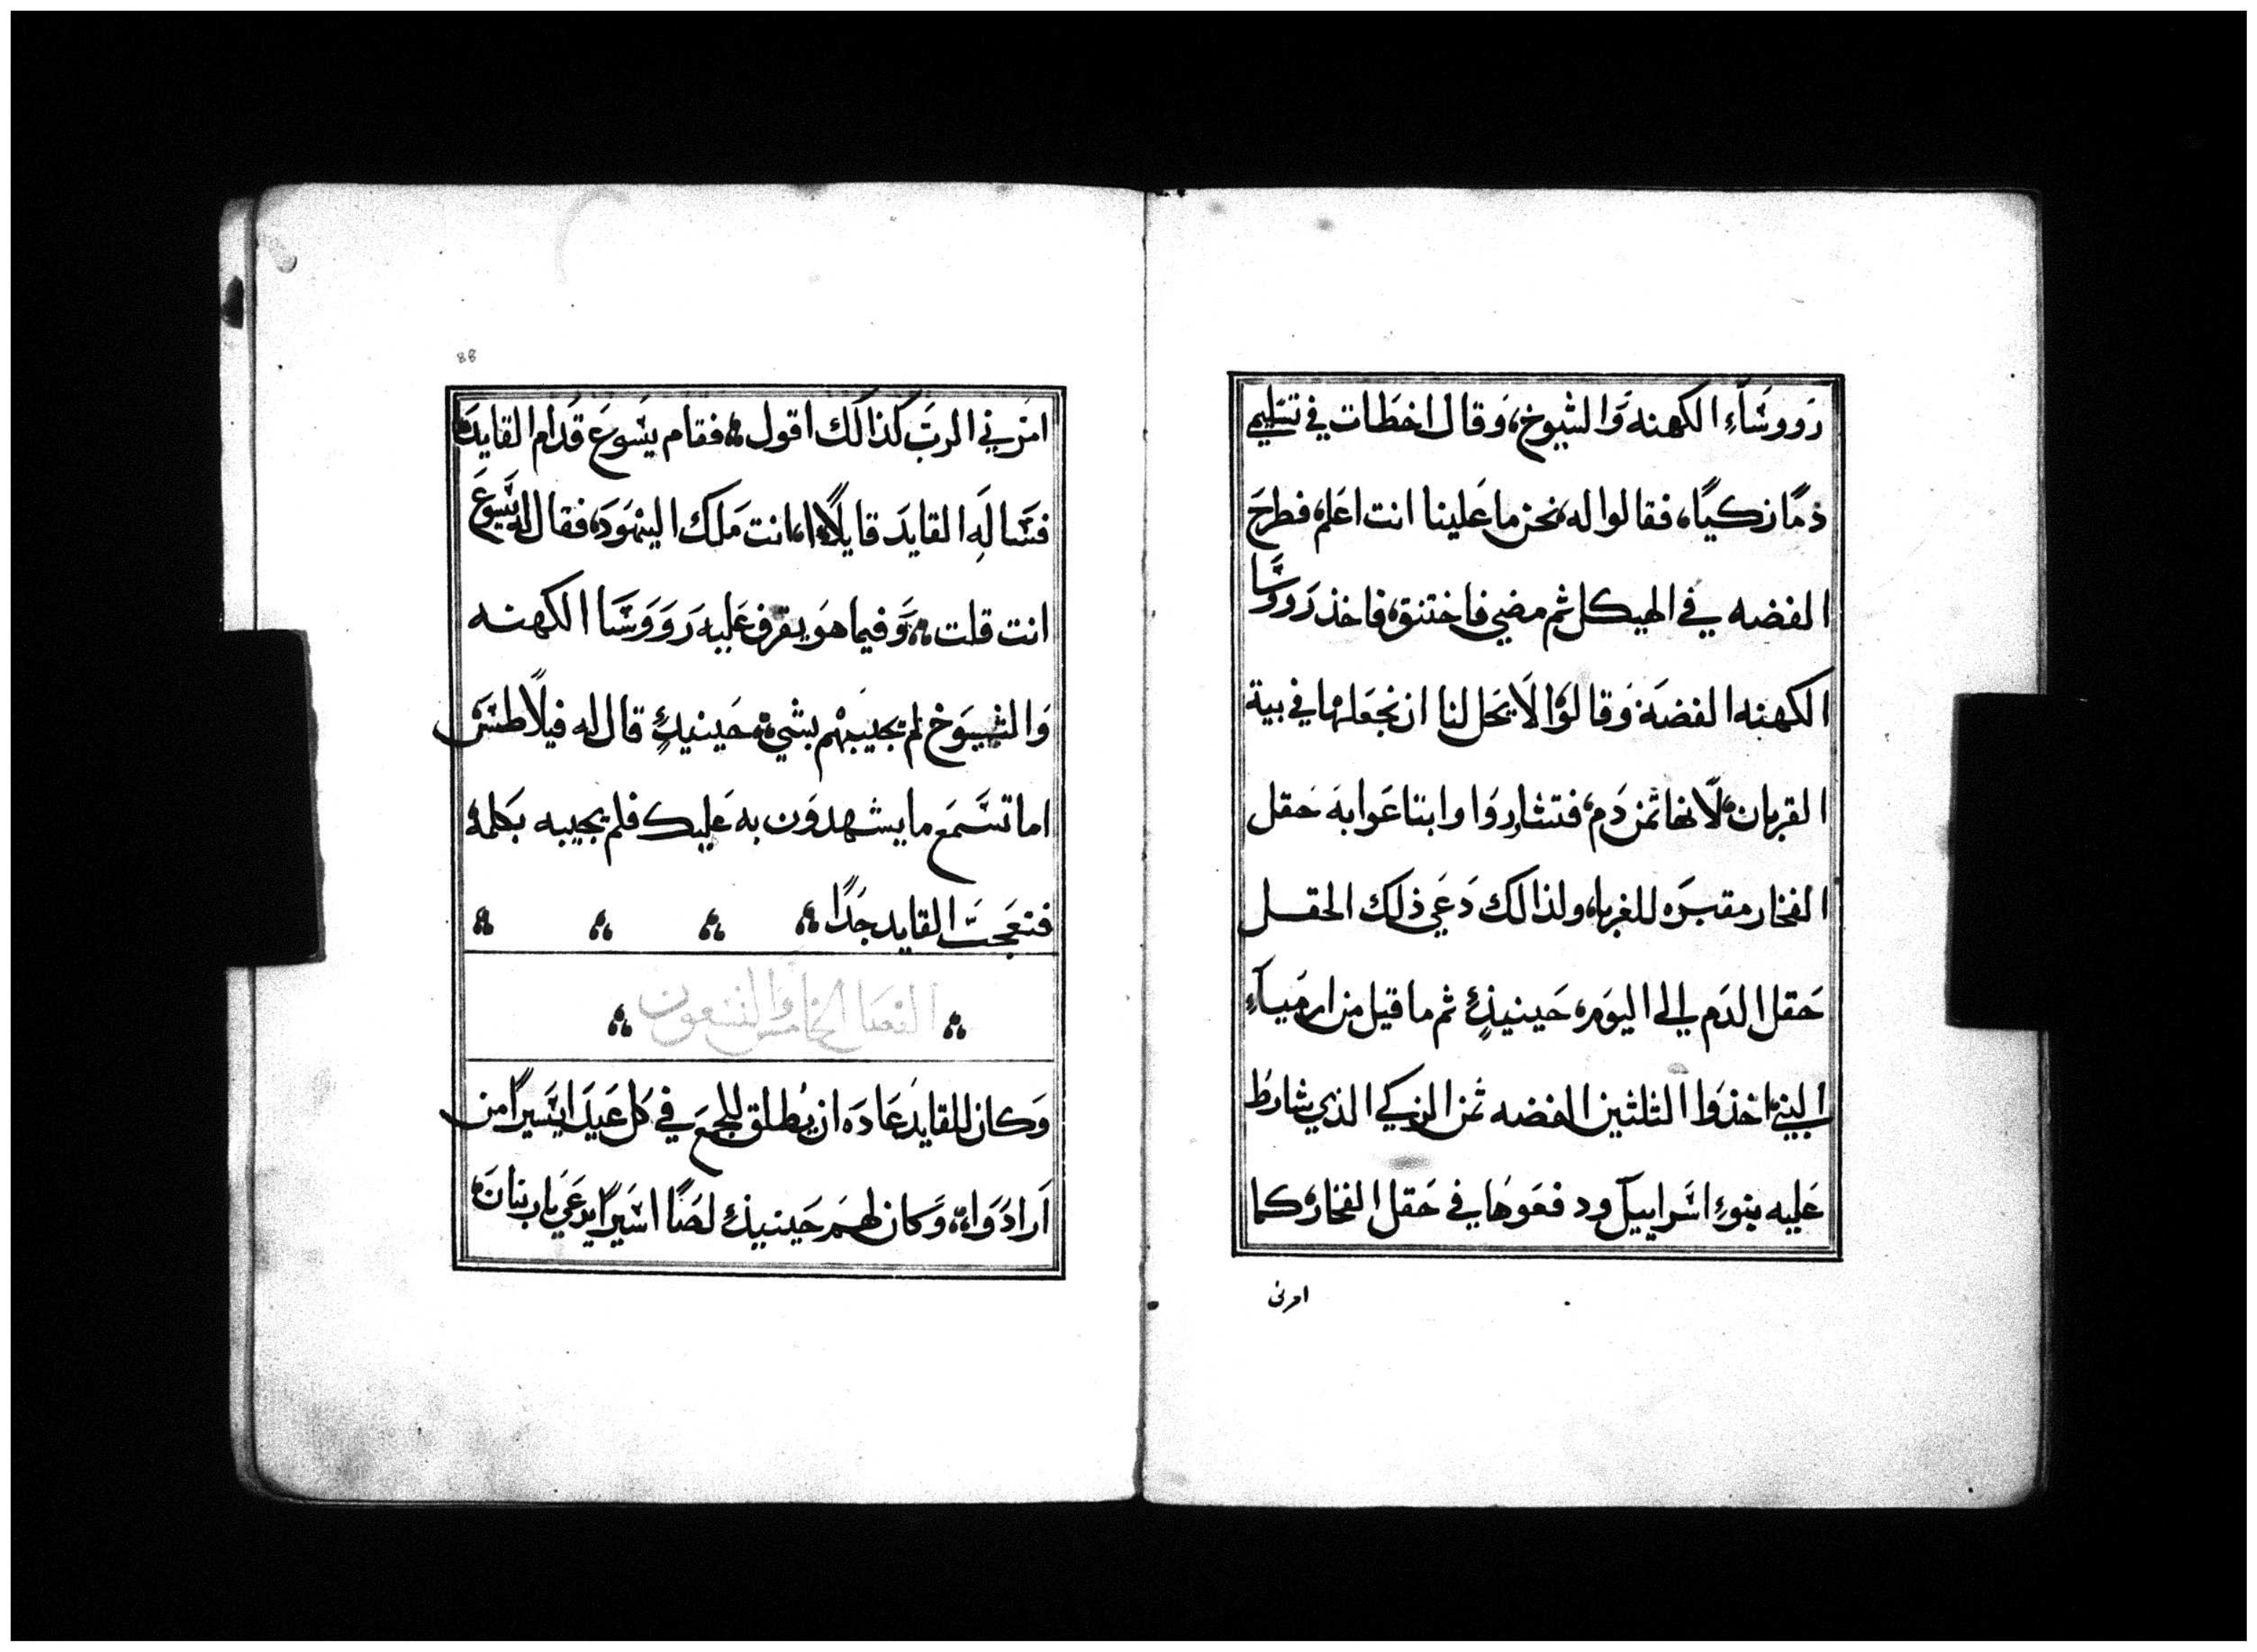 رووسَآءِ الكهنه وَالشيوخ، وَقال اخطَات في تسَليمي
دمًا زكيًا، فقالوا له، نحن ما عَلينا انت اعَلم، فطرحَ
الفضه في الهيكل ثم مضي فاختنق، فاخذ رَووسَّا
الكهنه الفضَة وَقالوَا لَا يَحل لنا ان نجعَلها في بية
القربان، لَانها ثمن دَم، فتشاروَا وابتاعَوا به حَقل
الفخار مقبرَه للغربا، ولذالك دَعَي ذلك الحقل
حَقل الدَم الي اليوَم، حَينيذٍ ثم ما قيل من ارميَآءِ
النبي، اخذوَا الثلثين الفضه ثمن الزكي الذي شارطَ
عَليه بنوءِ اسَراييل ودفعَوهَا في حَقل الفخار، كما
امرني
88
امرَني الربَ كذالك اقول، فقام يسَوعَ قدَام القايدَ،
فسَالَهِ القايدَ قايلًا، اءانت مَلك اليهوَدَ، فقال له يسَّوعَ
انت قلت، وَفيما هوَ يقرف عَليه رَوَوَسَا الكهنه
وَالشيوَخ لم يجيبَهم بشيءٍ، حَينيذٍ قال له فيلَاطسَ
اما تسَمعَ ما يشهدوَن به عَليك فلم يجيبه بكَلمه
فتعَجبَ القايد جدًا
الفصَل الخامسَ والتسعون
وَكان للقايدَ عَادَه ان يُطلق للجمعَ في كل عَيدَ ايسَيرًا من
اَرادَوَا، وَكان لهمَ حَينيذٍ لصَا اسَيرًا يدعَي بارَبنانَ